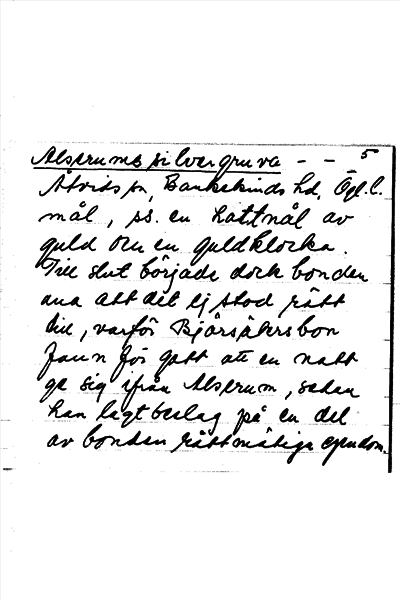 Alsrums silvergruva - - 5
Åtvids sn, Bankekinds hd, Ögl. l.
mål, ss. en hattnål av
guld och en guldklocka.
Till slut började dock bonden
ana att det ej stod rätt
till, varför Bjärsäkersbon
fann för gott att en natt
ge sig ifrån Alsrum, sedan
han lagt beslag på en del
av bonden rättmätiga egendom.